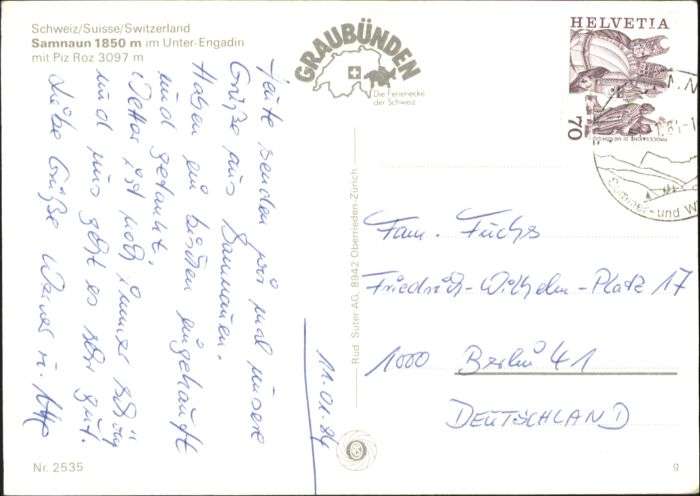 Schweiz/Suisse/Switzerland
Samnaun 1850 m im Unter-Engadin
mit Piz Roz 3097 m
GRAUBÜNDEN
Die Ferienecke
der Schweiz
HELVETIA
70
Heute senden wir mal unsere
Grüße aus Samnaun.
Haben ein bißchen eingekauft
und getankt.
Wetter ist noch immer schön
und uns geht es sehr gut.
Liebe Grüße Werner u.
11.01.84
Fam. Fuchs
Friedrich-Wilhelm-Platz 17
1000 Berlin 41
DEUTSCHLAND
Rud. Suter AG, 8942 Oberrieden-Zürich
Sommer- und W
Nr. 2535
g